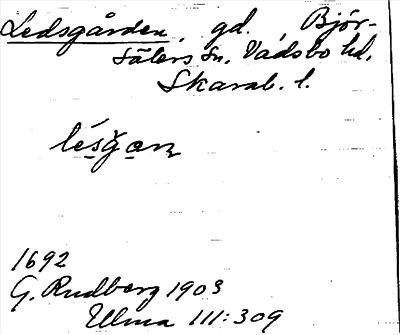 Ledsgården, gd, Björ-
säters sn, Vadsbo hd,
Skarab. l.
1692
G. Rudberg 1903
Ulma 111:309